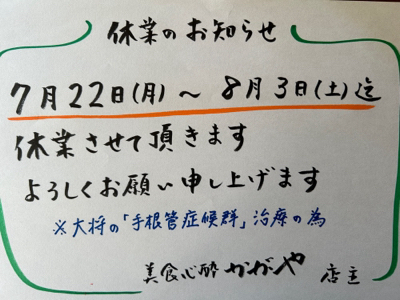 休業のお知らせ
7月22日(月)～8月3日(土)迄
休業させて頂きます
よろしくお願い申し上げます
※大将の「手根管症候群」治療の為
美食心酔 かがや 店主